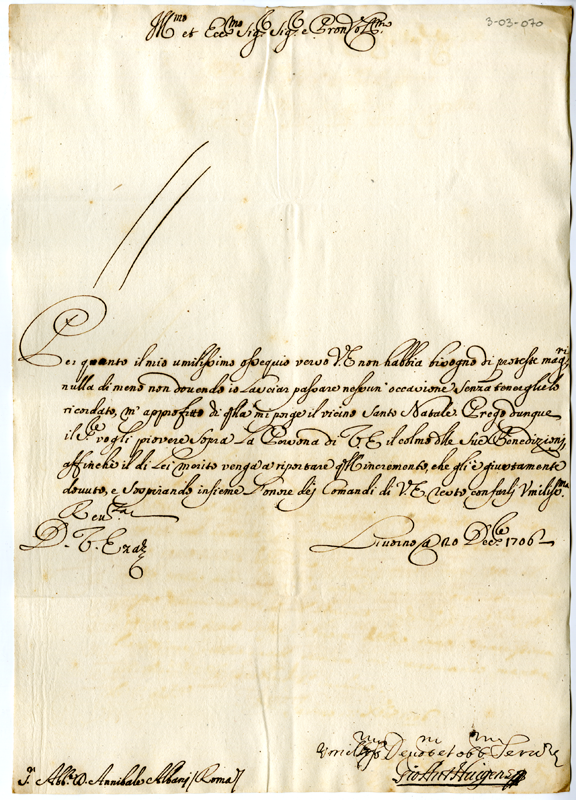 3-03-070
Ill.mo et Ecc.mo Sig.r Sig.r e Pron Col.mo
Per quanto il mio umilissimo ossequio verso V.E. non habbia bisogno di proteste mag.ri
nulla di meno non dovendo io Lasciar passare nessun' occasione senza
ricordato, m' approfitto di q.lla mi porge il vicino Santo Natale. Prego dunque
il S.re vogli piovere sopra La Persona di V.E. il colmo d.lle Sue Benedizioni,
affinche il di Lei merito venga a riportare q.ll incremento, che gli è giustamente
dovuto, e sospirando insieme l'onore dei Comandi di V.E. resto con farli Umiliss.ma
Reu.za
D. V. Ecza
Livorno a 20 Dec.bre 1706
Umiliss.mo Devo et obb Serv.
Gio Ant Huigens
S.r Abb.e D. Annibale Albani / Roma /